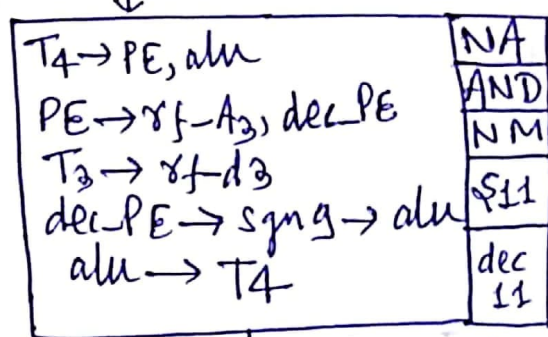 T4→ PE, alu
PE→ rf-A3, dec_PE
T3 → rf-d3
dec_PE → sgn9 → alu
alu → T4
NA
AND
NM
S11
dec
11